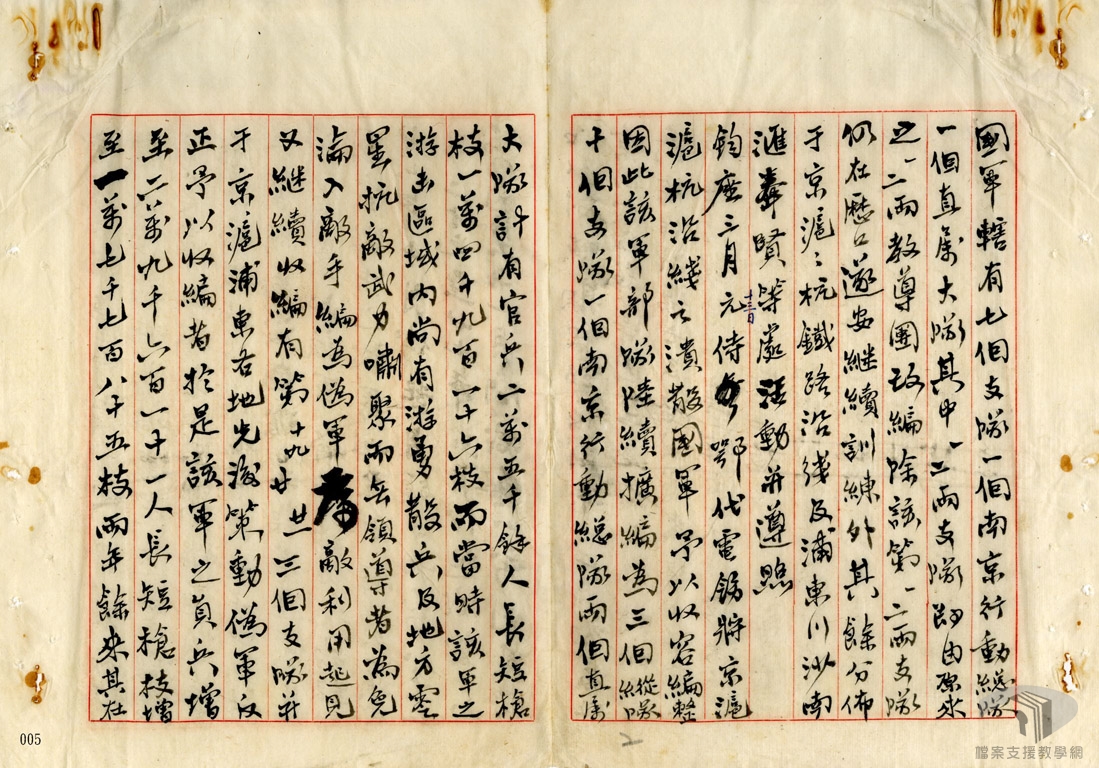 國軍轄有七個支隊一個南京行動總隊
一個直屬大隊其中一二兩支隊即由原來
之一二兩教導團改編除該第一二兩支隊
仍在歷口遂安繼續訓練外其餘分佈
于京滬滬杭鐵路沿綫及浦東川沙南
滙奉賢等處活動并遵照
鈞座三月元侍鄂代電飭將京滬
十三日
滬杭沿綫之潰散國軍予以收容編整
因此該軍部隊陸續擴編為三個縱隊
十個支隊一個南京行動總隊兩個直屬
大隊計有官兵二萬五千餘人長短槍
枝一萬四千九百一十六枝而當時該軍之
游击區域內尚有游勇散兵及地方零
星抗敵武力嘯聚而無領導者為免
淪入敵手編為偽軍 敵利用起見
又繼續收編有第十九廿廿一三個支隊并
于京滬浦東各地先後策動偽軍反
正予以收編者於是該軍之員兵增
至二萬九千六百一十一人長短槍枝增
至一萬七千七百八十五枝兩年餘來其在
005
檔案支援教學網